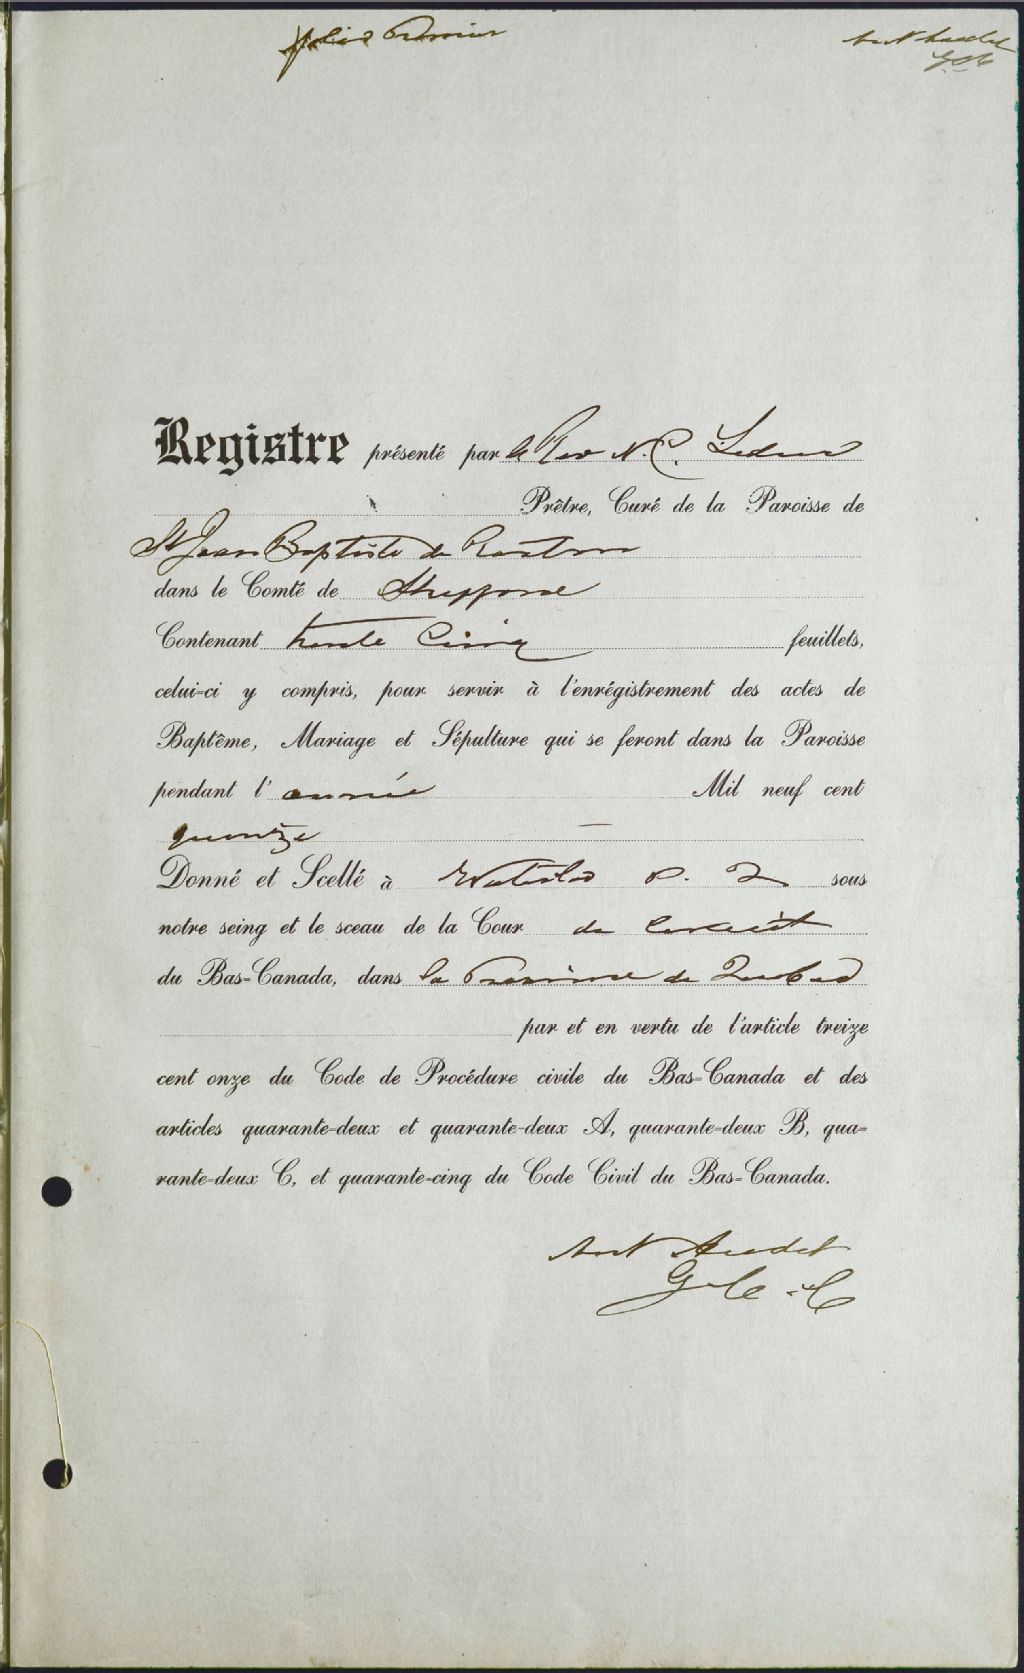 folio Premier
Ant Audet
GCC
Registre présenté par le Rev N. C. Leduc
Prêtre, Curé de la Paroisse de
St Jean Baptiste de Roxton
dans le Comté de Shefford
Contenant trente Cinq feuillets,
celui-ci y compris, pour servir à l'enrégistrement des actes de
Baptême, Mariage et Sépulture qui se feront dans la Paroisse
pendant l'année Mil neuf cent
quinze —
Donné et Scellé à Waterloo P. Q sous
notre seing et le sceau de la Cour de Circuit
du Bas-Canada, dans la Province de Quebec
par et en vertu de l'article treize
cent onze du Code de Procédure civile du Bas-Canada et des
articles quarante-deux et quarante-deux A, quarante-deux B, qua-
rante-deux C, et quarante-cinq du Code Civil du Bas-Canada.
Ant Audet
G.C.C.